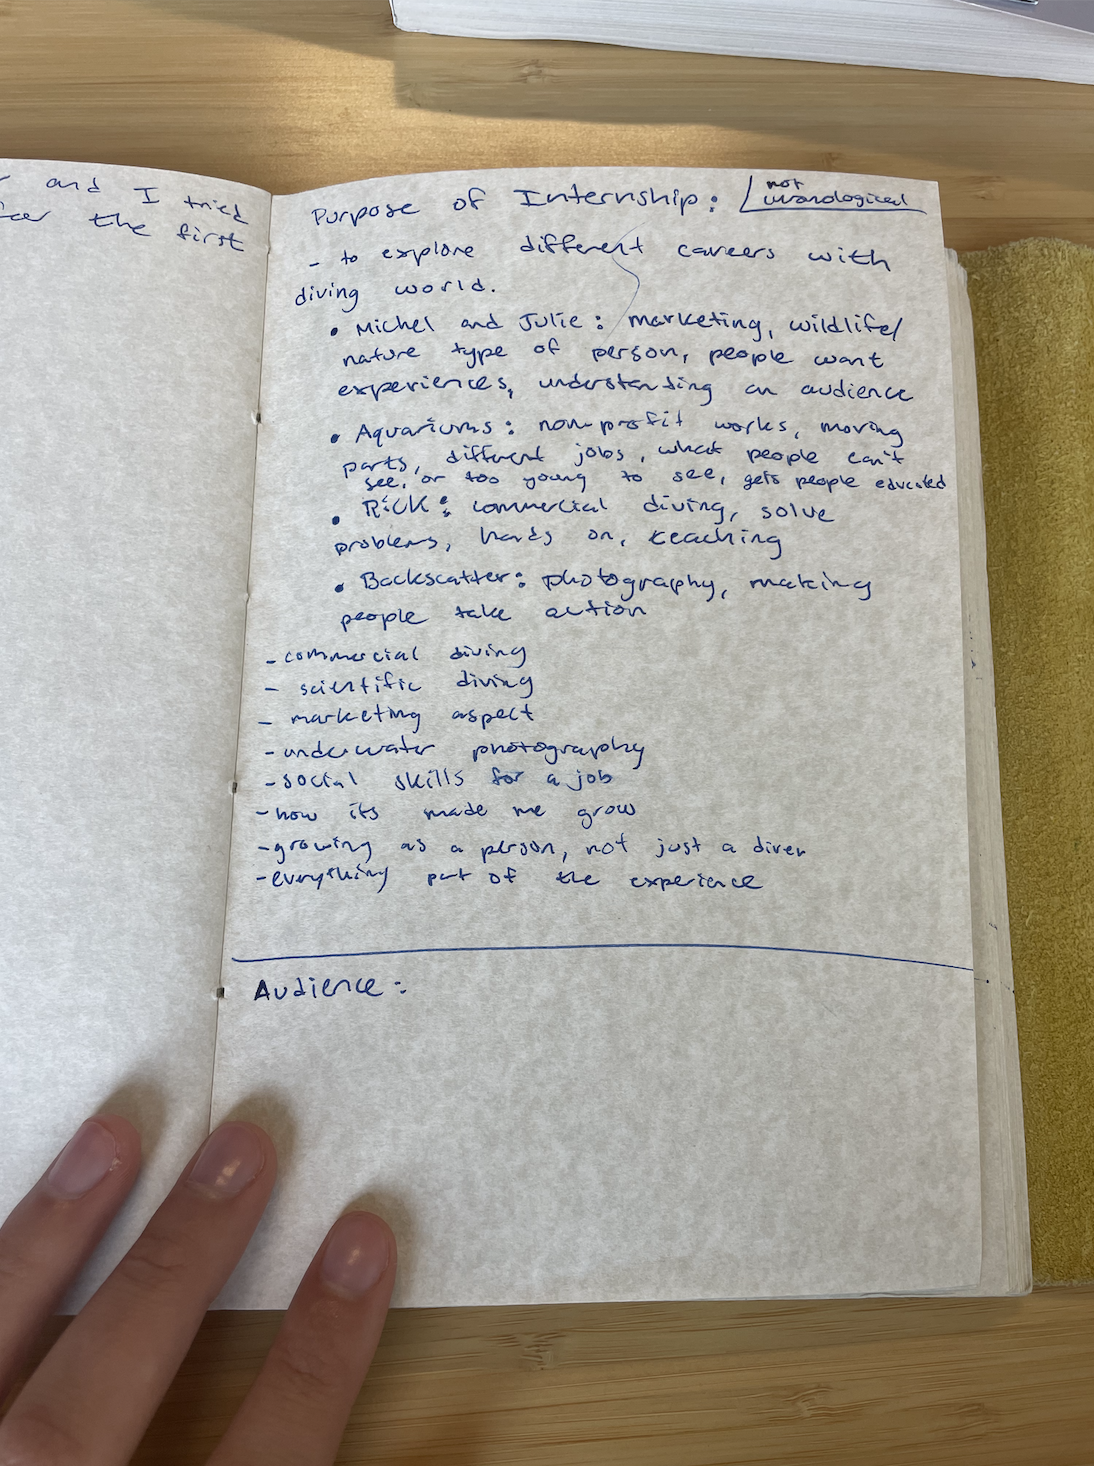 and I tried
the first
Purpose of Internship: not
uronological
- to explore different careers with
diving world.
• Michel and Julie: marketing, wildlife/
nature type of person, people want
experiences, understanding an audience
• Aquariums: non-profit works, moving
parts, different jobs, what people can't
see, or too young to see, gets people educated
• Rick: commercial diving, solve
problems, hands on, teaching
• Backscatter: photography, making
people take action
- commercial diving
- scientific diving
- marketing aspect
- underwater photography
- social skills for a job
- how its made me grow
- growing as a person, not just a diver
- everything part of the experience
Audience: